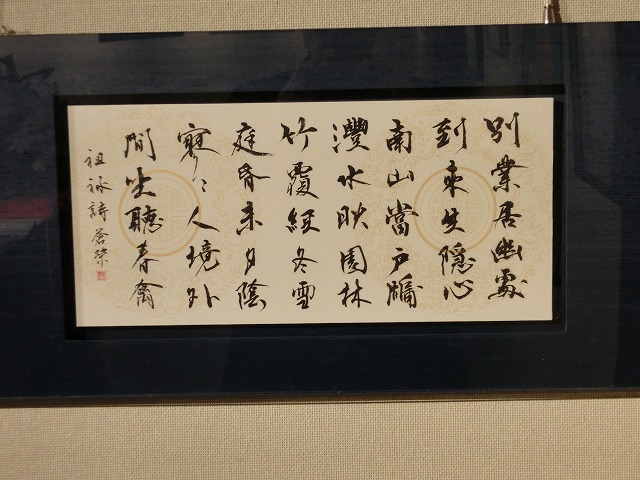 別業居幽處
到來生隱心
南山當戶牖
灃水映園林
竹覆經冬雪
庭昏未夕陰
寥〻人境外
閒坐聽春禽
祖詠詩 蒼榮